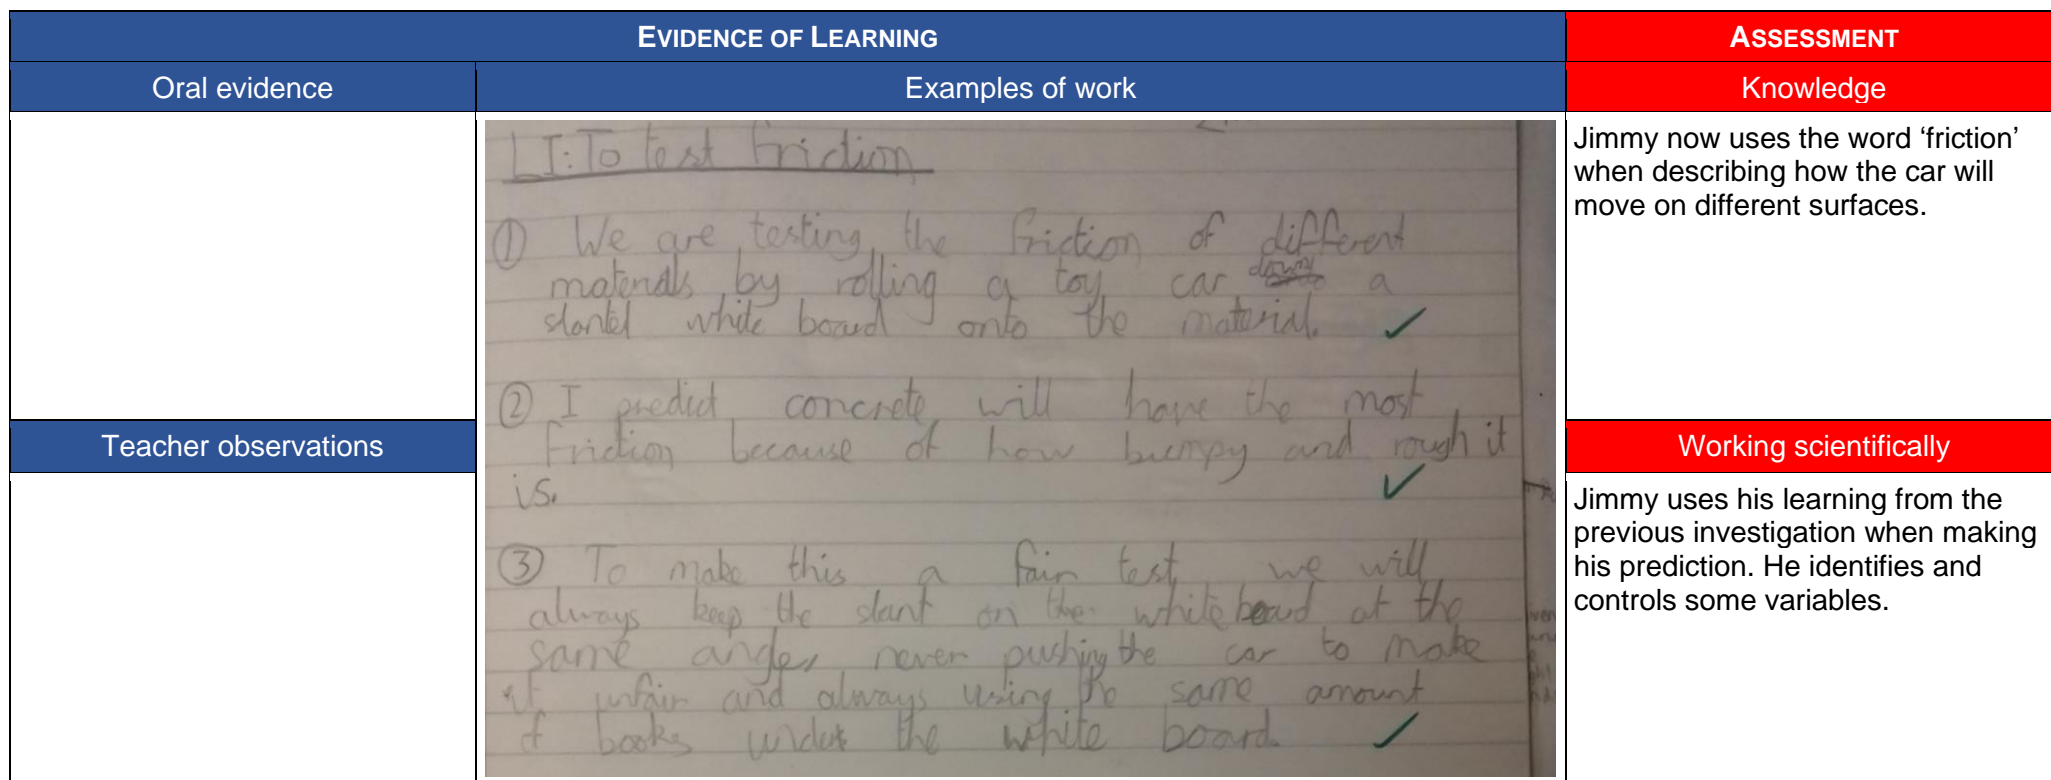 EVIDENCE OF LEARNING
ASSESSMENT
Oral evidence
Examples of work
Knowledge
LI: To test friction
① We are testing the friction of different
materials by rolling a toy car down a
slanted white board onto the material.
② I predict concrete will have the most
friction because of how bumpy and rough it
is.
③ To make this a fair test, we will
always keep the slant on the whiteboard at the
same angle, never pushing the car to make
it unfair and always using the same amount
of books under the white board.
Jimmy now uses the word ‘friction’
when describing how the car will
move on different surfaces.
Teacher observations
Working scientifically
Jimmy uses his learning from the
previous investigation when making
his prediction. He identifies and
controls some variables.